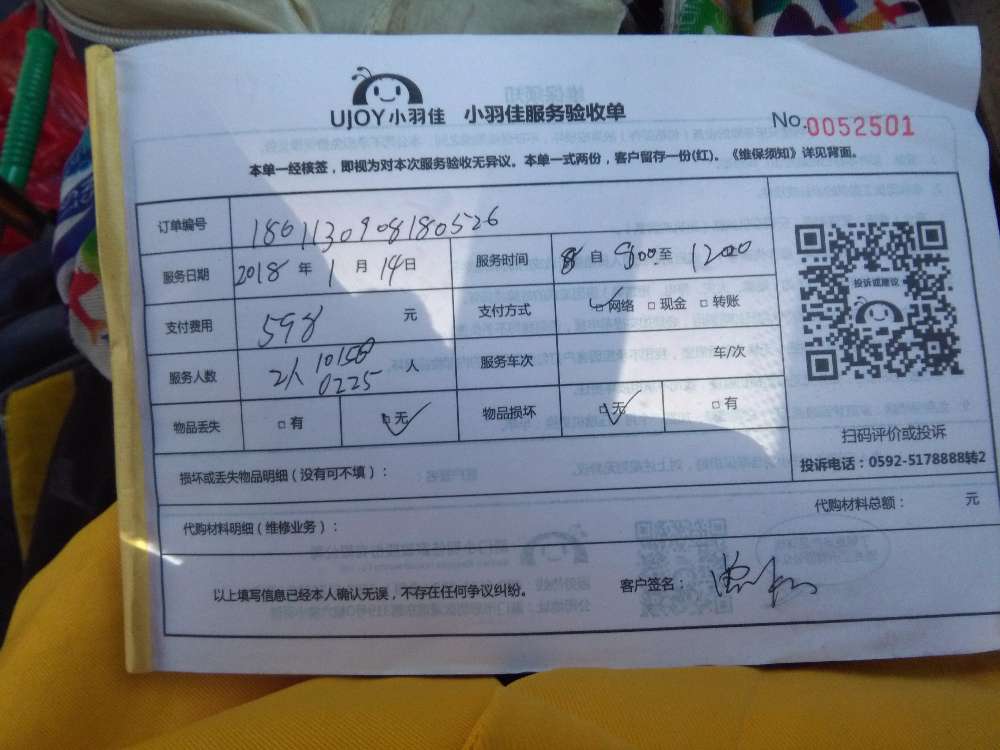 UJOY小羽佳 小羽佳服务验收单
No.0052501
本单一经核签，即视为对本次服务验收无异议。本单一式两份，客户留存一份(红)。《维保须知》详见背面。
订单编号 1801130908180526
服务日期 2018 年 1 月 14 日 服务时间 自 900 至 1200
支付费用 598 元 支付方式 □网络 □现金 □转账
服务人数 2人 10158 0225 人 服务车次 车/次
物品丢失 □有 □无 物品损坏 □无 □有
投诉或建议
扫码评价或投诉
投诉电话：0592-5178888转2
损坏或丢失物品明细（没有可不填）：
代购材料明细（维修业务）： 代购材料总额： 元
以上填写信息已经本人确认无误，不存在任何争议纠纷。 客户签名：